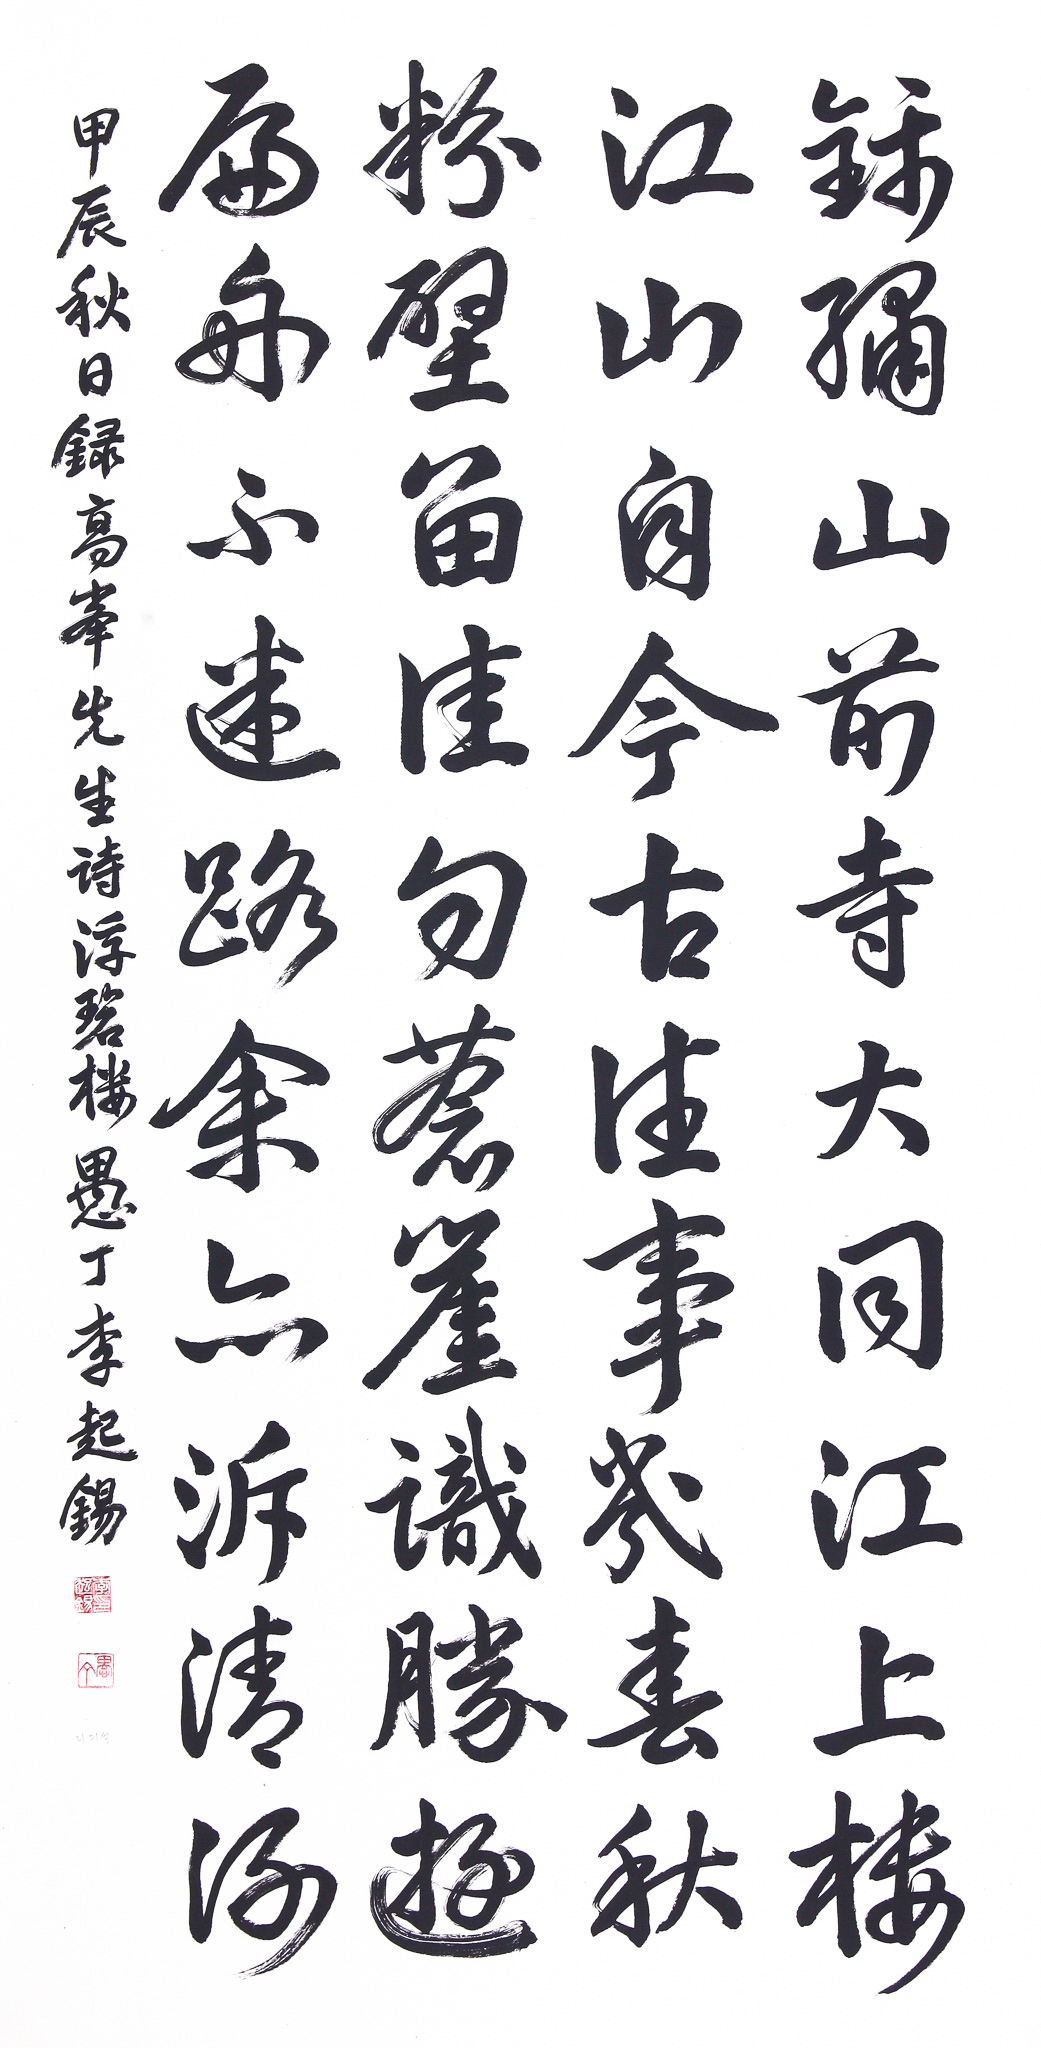 錦繡山前寺大同江上樓
江山自今古往事幾春秋
粉壁留佳句蒼崖識勝遊
扁舟不迷路余亦泝清流
甲辰秋日錄高峯先生詩浮碧樓愚丁李起錫